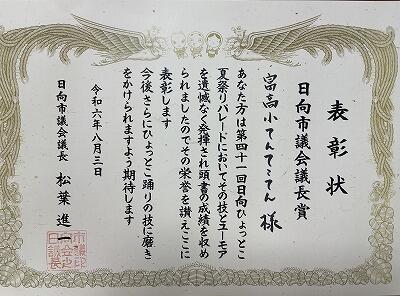 表彰状
日向市議会議長賞
富高小てんてこてん 様
あなた方は第四十一回日向ひょっとこ
夏祭りパレードにおいてその技とユーモア
を遺憾なく発揮され頭書の成績を収め
られましたのでその栄誉を讃えここに
表彰します
今後さらにひょっとこ踊りの技に磨き
をかけられますよう期待します
令和六年八月三日
日向市議会議長 松葉 進一